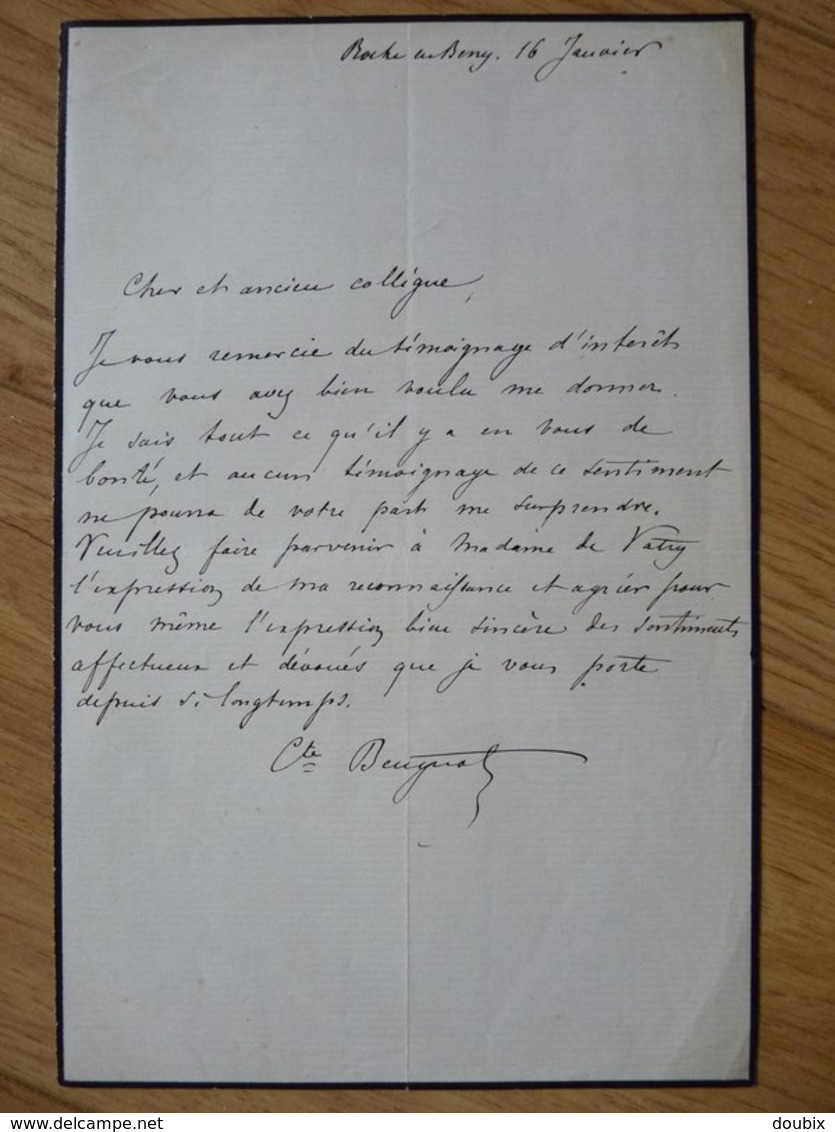 Roche en Breny. 16 Janvier
Cher et ancien collègue,
Je vous remercie du témoignage d'interêt
que vous avez bien voulu me donner.
Je sais tout ce qu'il y a en vous de
bonté, et aucun témoignage de ce sentiment
ne pourra de votre part me surprendre.
Veuillez faire parvenir à Madame de Vatry
l'expression de ma reconnaissance et agréer pour
vous même l'expression bien sincère des sentiments
affectueux et dévoués que je vous porte
depuis si longtemps.
Cte Beugnot
https://www.delcampe.net
doubix